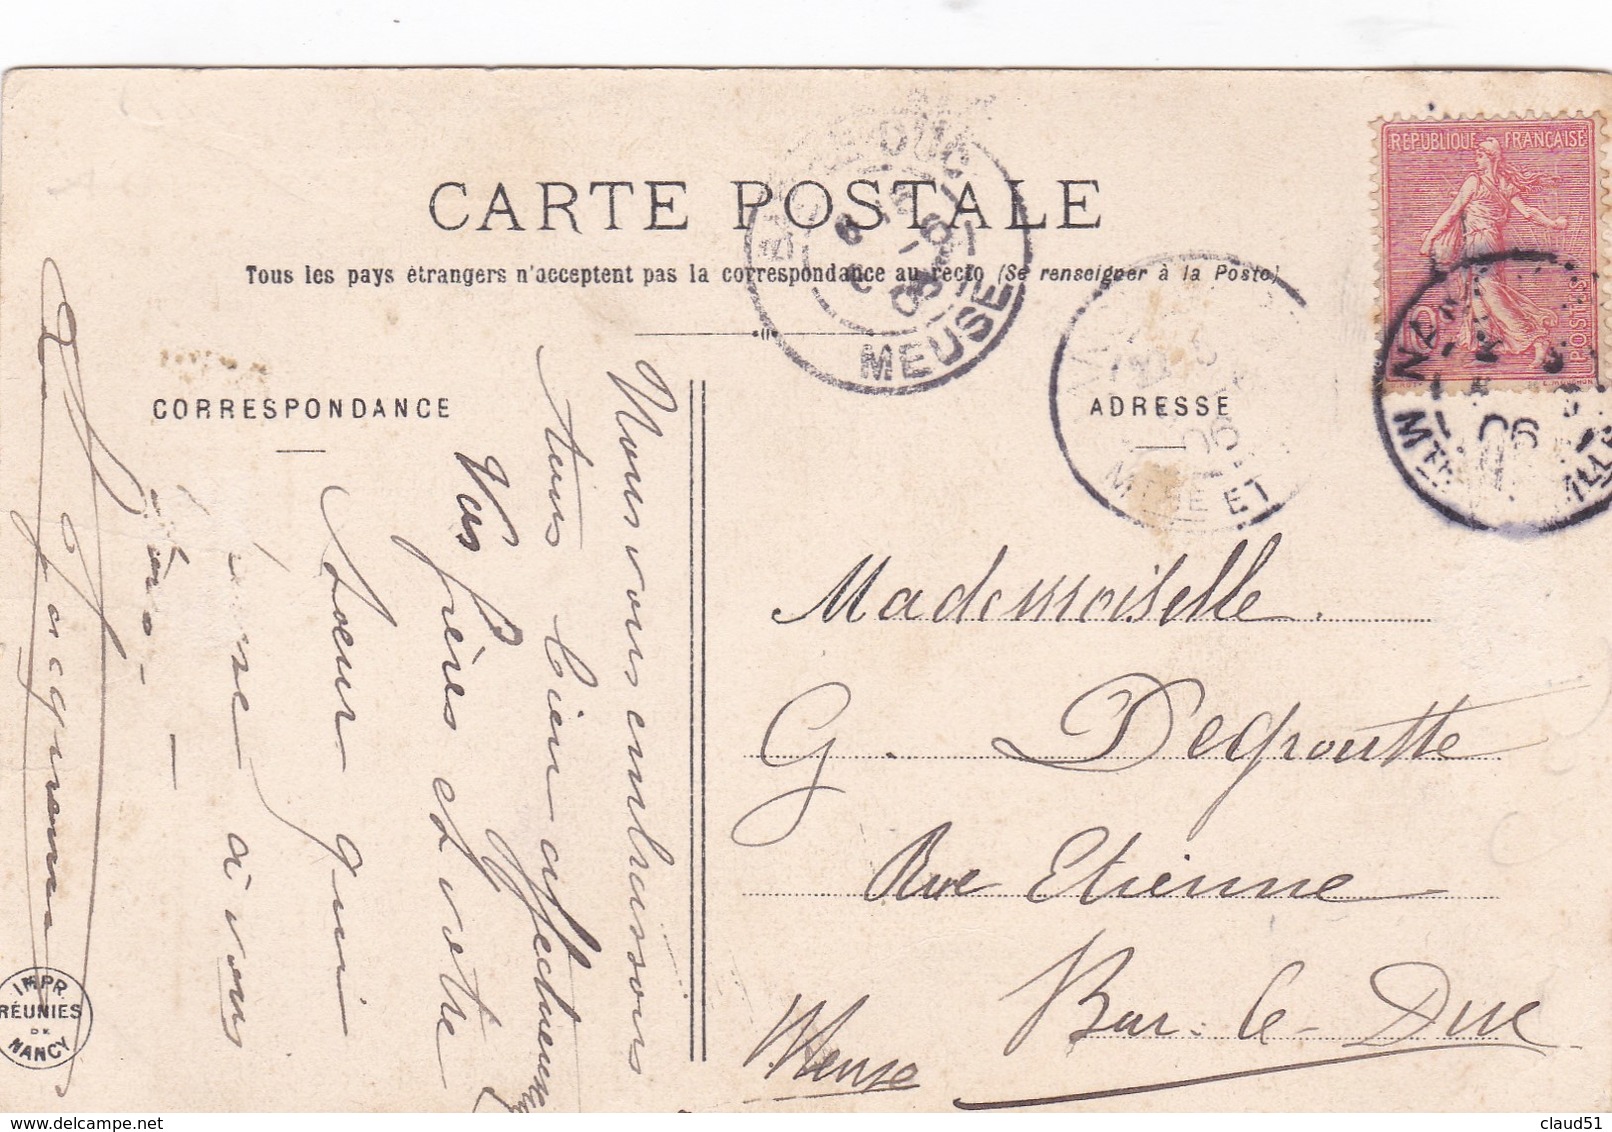 CARTE POSTALE
Tous les pays étrangers n'acceptent pas la correspondance au recto (Se renseigner à la Poste)
CORRESPONDANCE
ADRESSE
REPUBLIQUE FRANÇAISE
POSTES
MEUSE
06
MTHE ET
06
Nous vous embrassons
tous bien affectueuse
Vos frères et votre
soeur qui
à vous
Mademoiselle
G. Degroutte
Rue Etienne
Bar-le-Duc
Meuse
IMPR.
RÉUNIES
DE
NANCY
claud51